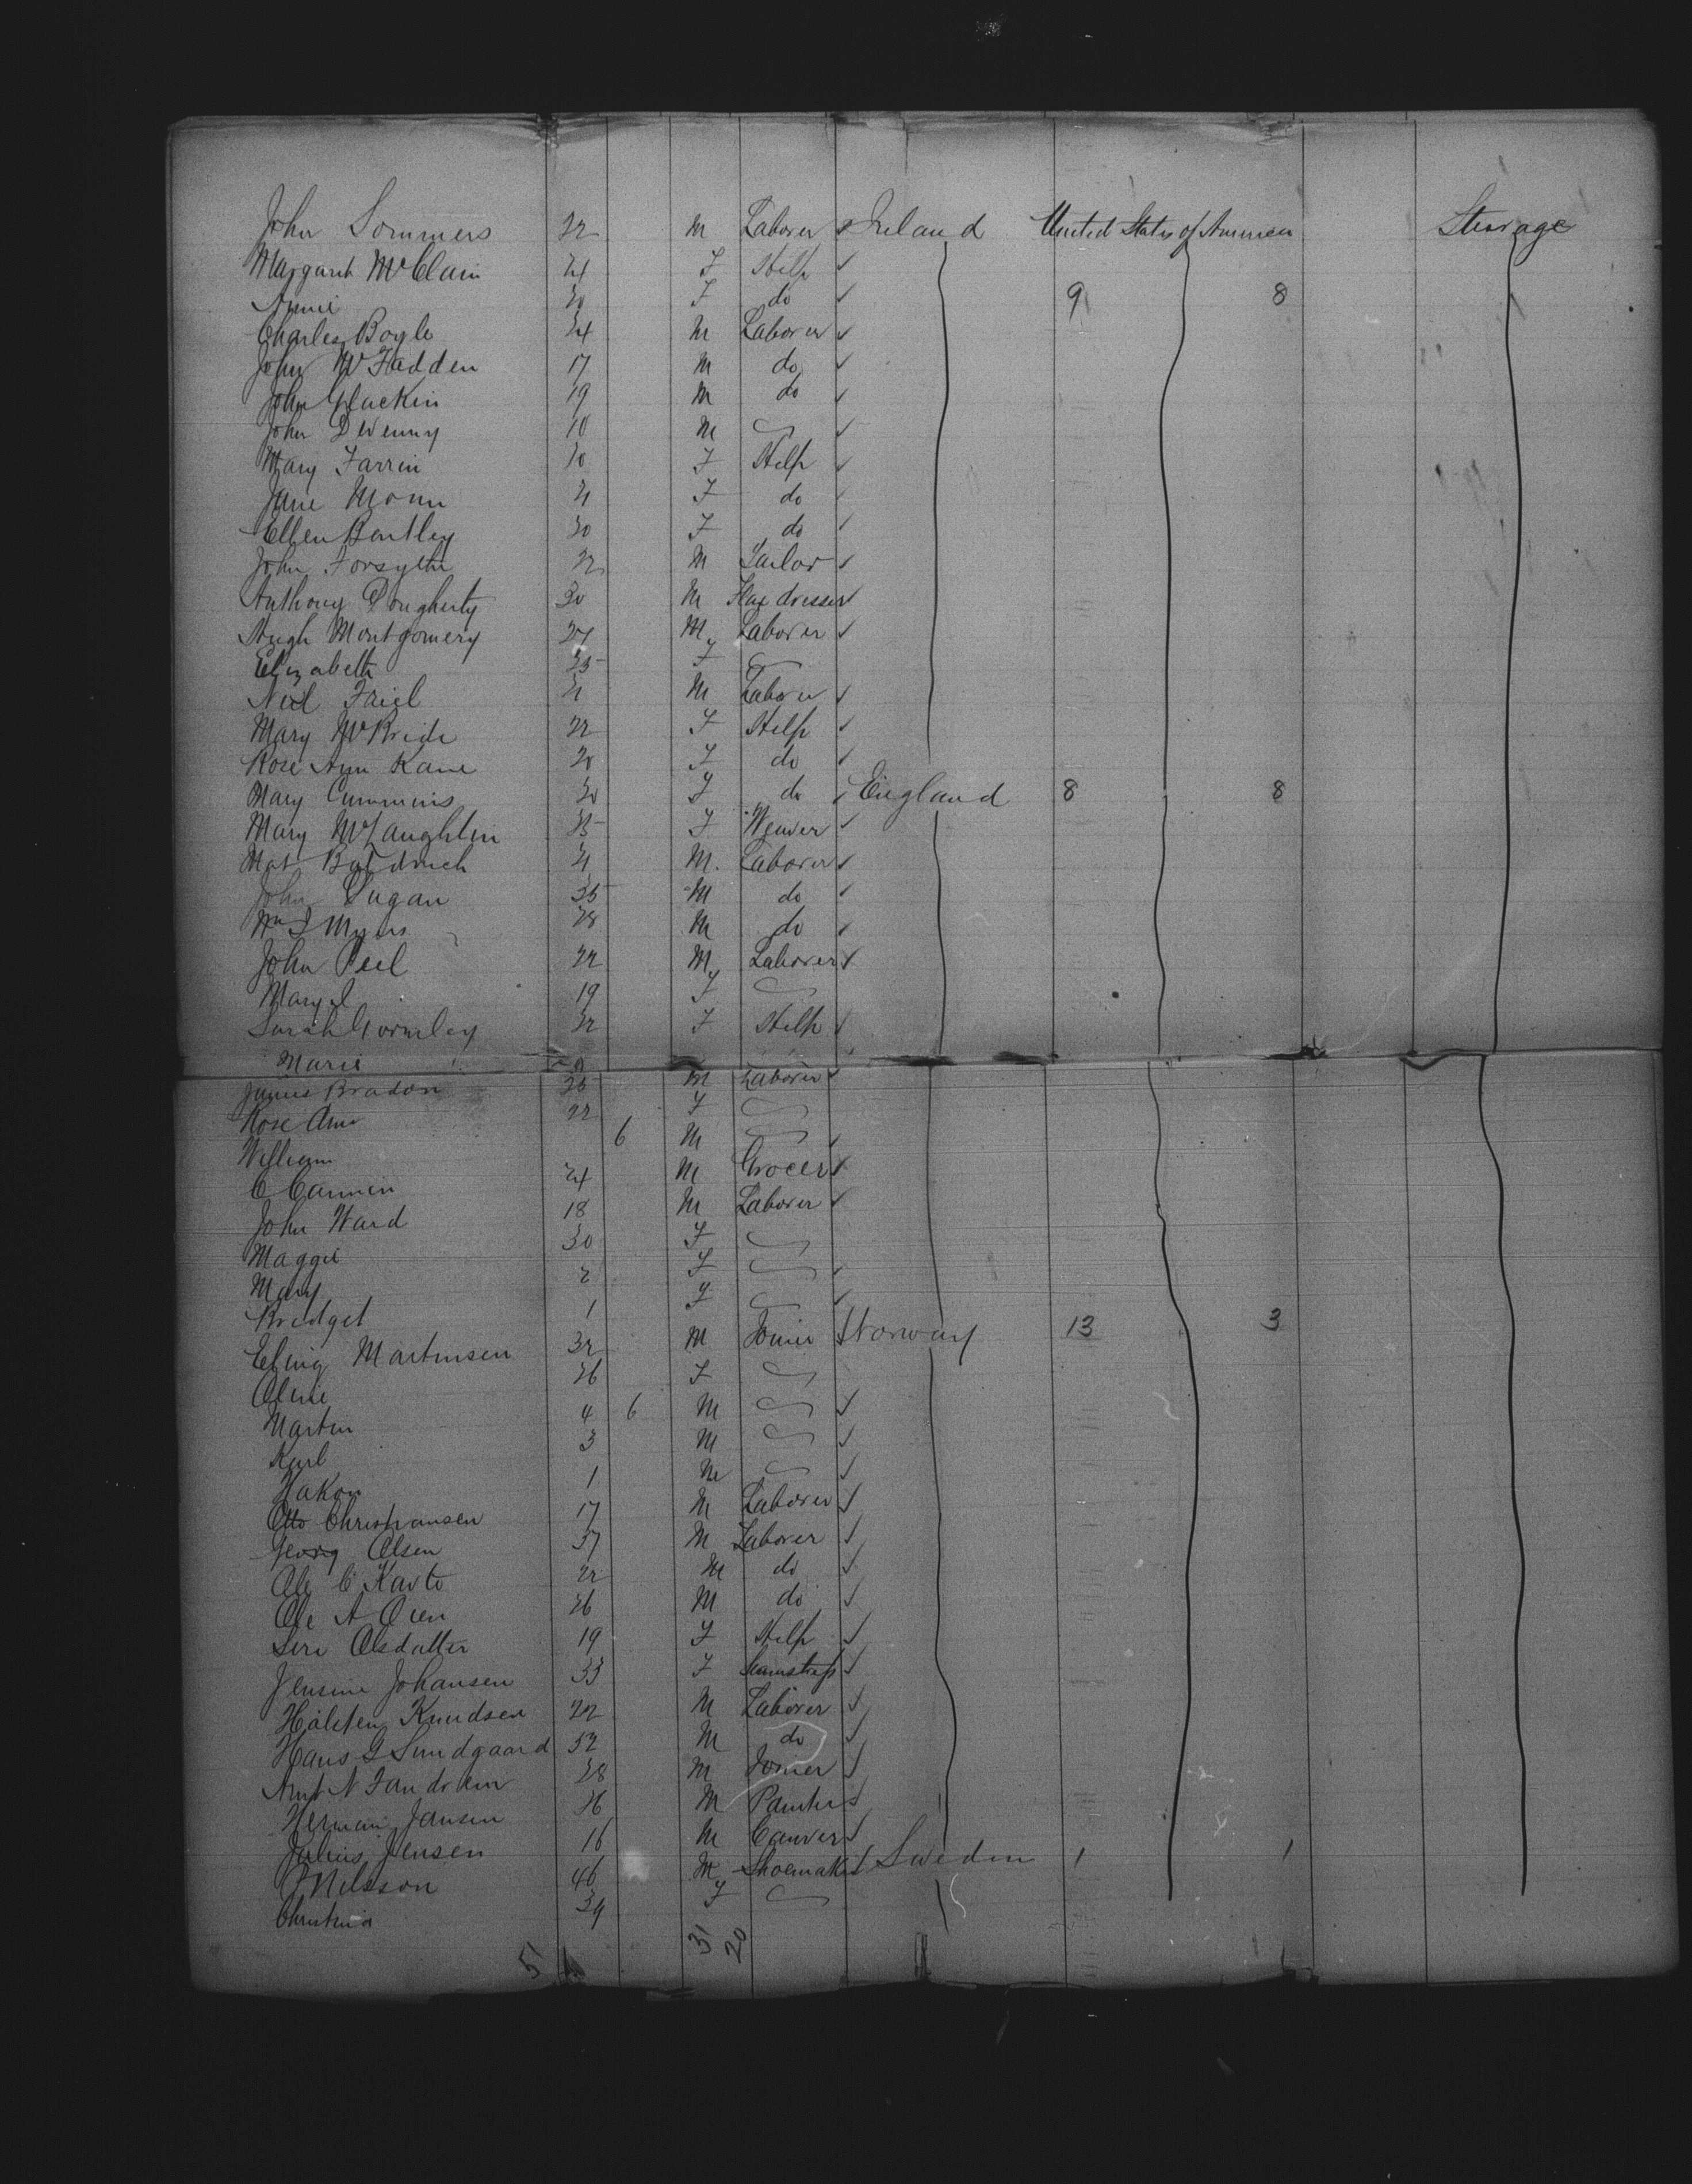 John Sommers 22 M Laborer Ireland United States of America Steerage
Margaret McClain 24 F Help
Annie 20 F do 9 8
Charles Boyle 24 M Laborer
John McFadden 17 M do
John Glackin 19 M do
John Devenny 10 M
Mary Farrin F Help
Jane F do
Ellen Bartley 20 F do
John Forsythe 22 M Tailor
Anthony Dougherty 30 M Flax dresser
Hugh Montgomery 27 M Laborer
Elizabeth 25 F
Neil Friel 21 M Laborer
Mary McBride 22 F Help
Rose Ann Kane 20 F do
Mary Cummins 20 F do England 8 8
Mary McLaughlin 25 F Weaver
Mat 21 M. Laborer
John Dugan 35 M do
Wm Myers 28 M do
John Peel 22 M Laborer
Mary 19 F
Sarah Gormley 22 F Help
Marie
James Bradon M Laborer
Rose Ann 22 F
William 6 M
C Cannin 24 M Grocer
John Ward 18 M Laborer
Maggie 30 F
Mary 2 F
Bridget 1 F
Martinsen 32 M Joiner Norway 13 3
Oline 26 F
Martin 4 6 M
Karl 3 M
Hakon 1 M
Otto Christiansen 17 M Laborer
Georg Olsen 37 M Laborer
Ole C 22 M do
Ole A Oien 26 M do
Olsdatter 19 F Help
Jensine Johansen 33 F Seamstress
Halsten Knudsen 22 M Laborer
Hans G Sundgaard 52 M do
28 M Joiner
Herman Jansen 26 M Painter
Julius Jensen 16 M Carver
Nilsson 46 M Shoemaker Sweden 1 1
Christina 39 F
51 31 20